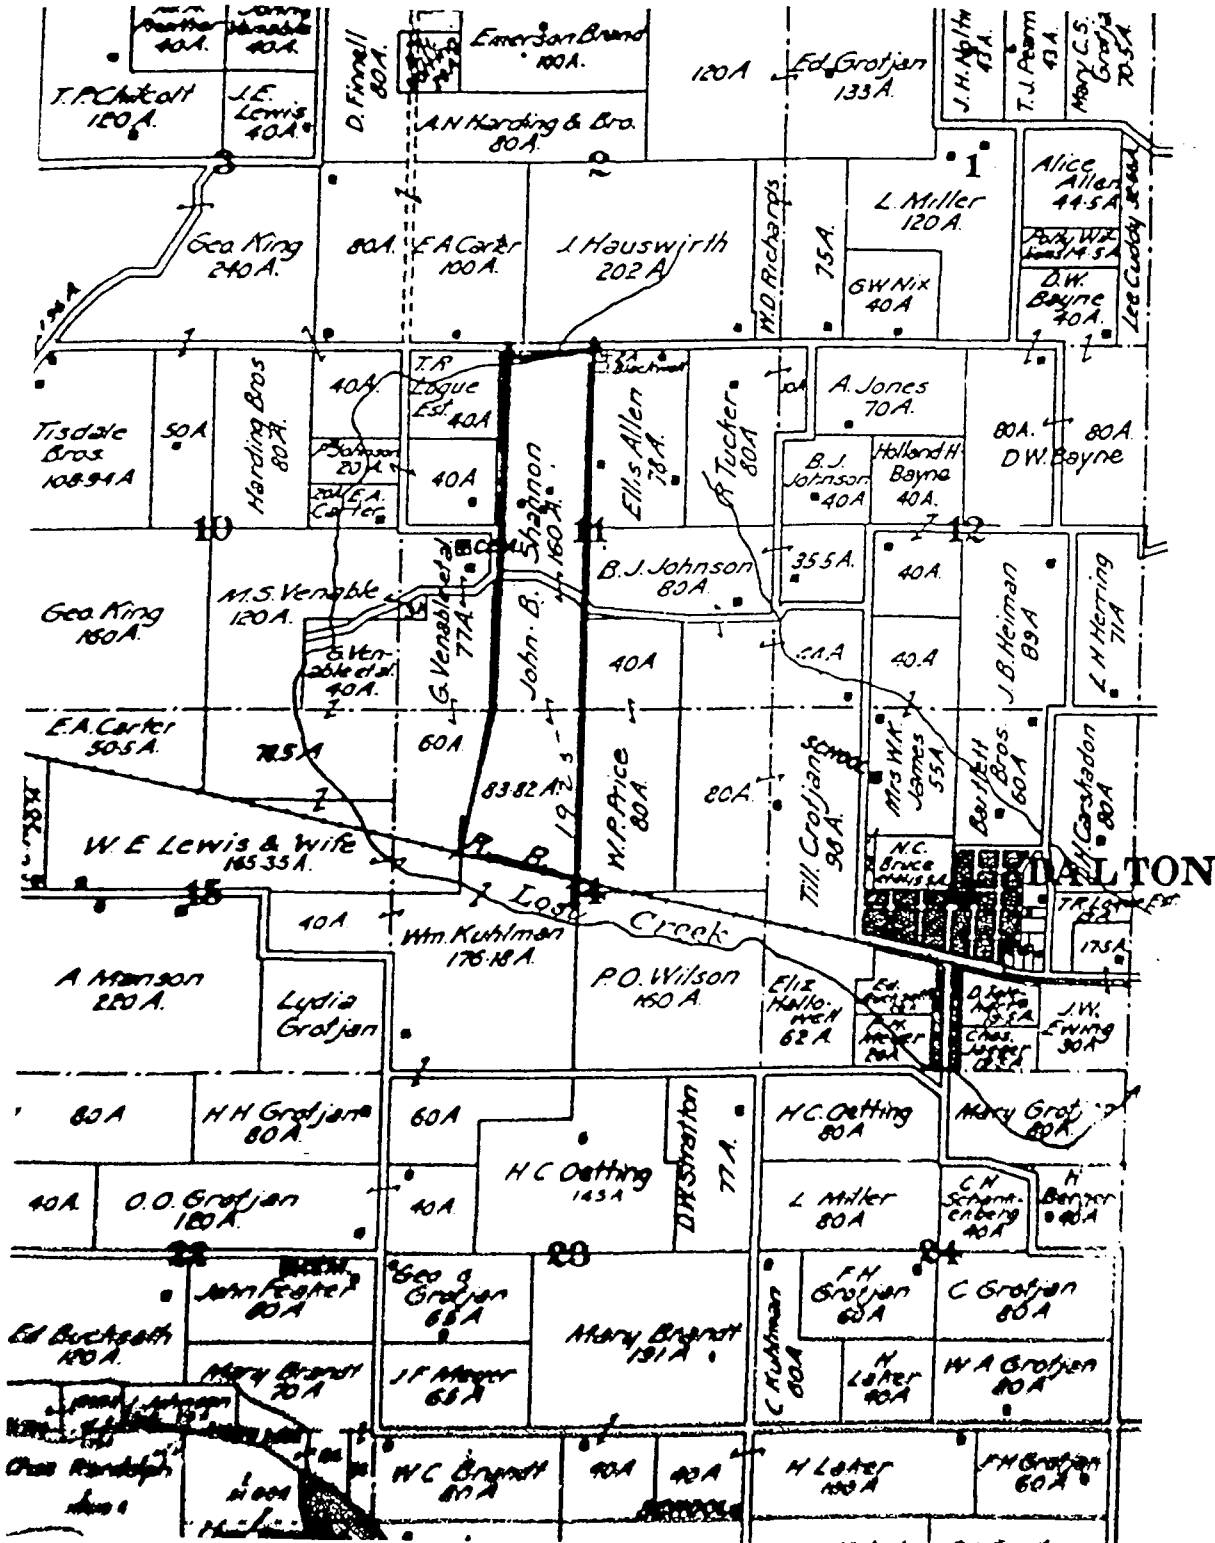 40A.
40A.
T.P. Chitcott
120A.
J.E.
Lewis
40A.
D. Finnell
80A.
Emerson Brand
100A.
A.N. Harding & Bro.
80A.
120A
Ed. Grotjan
133A.
J.H. Noltw
43A.
T.J. Pearn
43A.
Mary C.S.
Grotja
70.5A
3
2
1
Geo. King
240A.
80A.
E A Carter
100A.
J. Hauswirth
202A
W.D. Richards
75A.
L. Miller
120A.
GW Nix
40A.
Alice
Allen
44.5A
D.W.
Bayne
40A.
Lee Cuddy
Tisdale
Bros.
108.94A
50A
Harding Bros
80A.
40A.
T.R.
Logue
Est.
40A
P Johnson
20A.
20A
E.A.
Carter
40A
John B. Shannon
160A.
Ellis Allen
78A.
R Tucker
80A
A. Jones
70A.
B.J.
Johnson
40A
Holland H
Bayne
40A.
80A.
80A
D.W. Bayne
10
11
12
Geo. King
160A.
M.S. Venable
120A.
G. Ven-
able et al.
40A.
G. Venable et al
77A.
B.J. Johnson
80A.
35.5A.
40A.
40A
40.A
J.B. Heiman
89A
L H Herring
71A
E.A. Carter
50.5A.
78.5A
60A.
83.82A.
1925
W.P. Price
80A.
80A.
Till. Grotjan
98A.
SCHOOL
Mrs W.K.
James
55A.
Bartlett
Bros.
60A
H. Carshadon
80A
W E Lewis & Wife
165.35A.
R. R.
N.C.
Bruce
DALTON
15
14
Lost Creek
40A.
Wm. Kuhlman
176.18A.
P.O. Wilson
160A.
A Manson
220A.
Lydia
Grotjan
Eliz
Hallo-
well
62A.
T.R. Logue Est.
17.5A
J.W.
Ewing
30A
80A
H H Grotjan
80A.
60A
H C Oetting
143A
D.W. Stratton
77A.
H.C. Oetting
80A
Mary Grotjan
80A
40A.
O.O. Grotjan
120A.
40A.
L Miller
80A
C H
Schann-
enberg
40A
H
40A
22
23
24
John Feaker
80A
Geo G
Grotjan
65A
Mary Brandt
191A
C Kuhlman
80A
F H
Grotjan
60A
C Grotjan
80A
120A.
Mary Brandt
70A
J F Meyer
65A
H
Laker
40A
W A Grotjan
80A
Chas Randolph
W C Brandt
80A
40A
40A
SCHOOL
H Laker
100A
F H Grotjan
60A